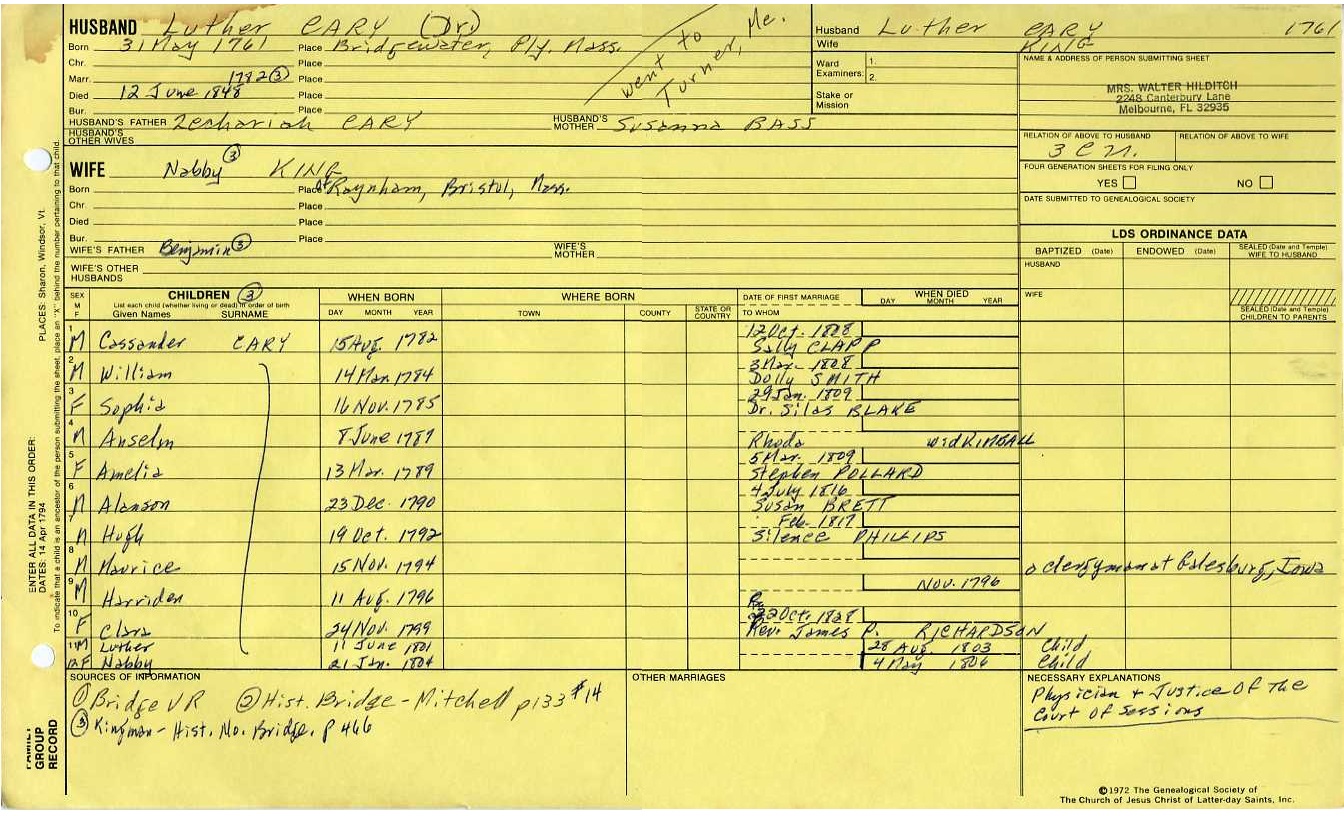 HUSBAND Luther CARY (Dr.)
Born 31 May 1761 Place Bridgewater, Ply. Mass.
went to Turner, Me.
Chr. Place
Marr. 1782 ③ Place
Died 12 June 1848 Place
Bur. Place
HUSBAND'S FATHER Zechariah CARY HUSBAND'S MOTHER Susanna BASS
HUSBAND'S OTHER WIVES
Husband Luther CARY 1761
Wife KING
Ward Examiners: 1.
2.
Stake or Mission
NAME & ADDRESS OF PERSON SUBMITTING SHEET
MRS. WALTER HILDITCH
2248 Canterbury Lane
Melbourne, FL 32935
RELATION OF ABOVE TO HUSBAND RELATION OF ABOVE TO WIFE
FOUR GENERATION SHEETS FOR FILING ONLY
YES NO
DATE SUBMITTED TO GENEALOGICAL SOCIETY
WIFE Nabby ③ KING
Born Place of Raynham, Bristol, Mass.
Chr. Place
Died Place
Bur. Place
WIFE'S FATHER Benjamin ③ WIFE'S MOTHER
WIFE'S OTHER HUSBANDS
LDS ORDINANCE DATA
BAPTIZED (Date) ENDOWED (Date) SEALED (Date and Temple) WIFE TO HUSBAND
HUSBAND
WIFE
SEALED (Date and Temple) CHILDREN TO PARENTS
SEX M F CHILDREN ③ WHEN BORN WHERE BORN DATE OF FIRST MARRIAGE WHEN DIED
List each child (whether living or dead) in order of birth
Given Names SURNAME DAY MONTH YEAR TOWN COUNTY STATE OR COUNTRY TO WHOM DAY MONTH YEAR
1 M Cassander CARY 15 Aug. 1782 12 Oct. 1808 Sally CLAPP
2 M William 14 Mar. 1784 3 Mar. 1808 Dolly SMITH
3 F Sophia 16 Nov. 1785 29 Jan. 1809 Dr. Silas BLAKE
4 M Anselm 8 June 1787 Rhoda wid KIMBALL
5 F Amelia 13 Mar. 1789 5 Mar. 1809 Stephen POLLARD
6 M Alanson 23 Dec. 1790 4 July 1816 Susan BRETT
7 M Hugh 19 Oct. 1792 Feb. 1817 Silence PHILLIPS
8 M Maurice 15 Nov. 1794 a clergyman at Galesburg, Iowa
9 M Harriden 11 Aug. 1796 Nov. 1796
10 F Clara 24 Nov. 1799 22 Oct. 1828 Rev. James P. RICHARDSON
11 M Luther 11 June 1801 28 Aug 1803 Child
12 F Nabby 21 Jan. 1804 4 May 1806 Child
SOURCES OF INFORMATION
① Bridge VR ② Hist. Bridge - Mitchell p133 #14
③ Kingman - Hist. No. Bridge. p 466
OTHER MARRIAGES
NECESSARY EXPLANATIONS
Physician + Justice Of The
Court Of Sessions
©1972 The Genealogical Society of
The Church of Jesus Christ of Latter-day Saints, Inc.
FAMILY GROUP RECORD
ENTER ALL DATA IN THIS ORDER:
DATES: 14 Apr 1794
PLACES: Sharon, Windsor, Vt.
To indicate that a child is an ancestor of the person submitting the sheet, place an "X" behind the number pertaining to that child.